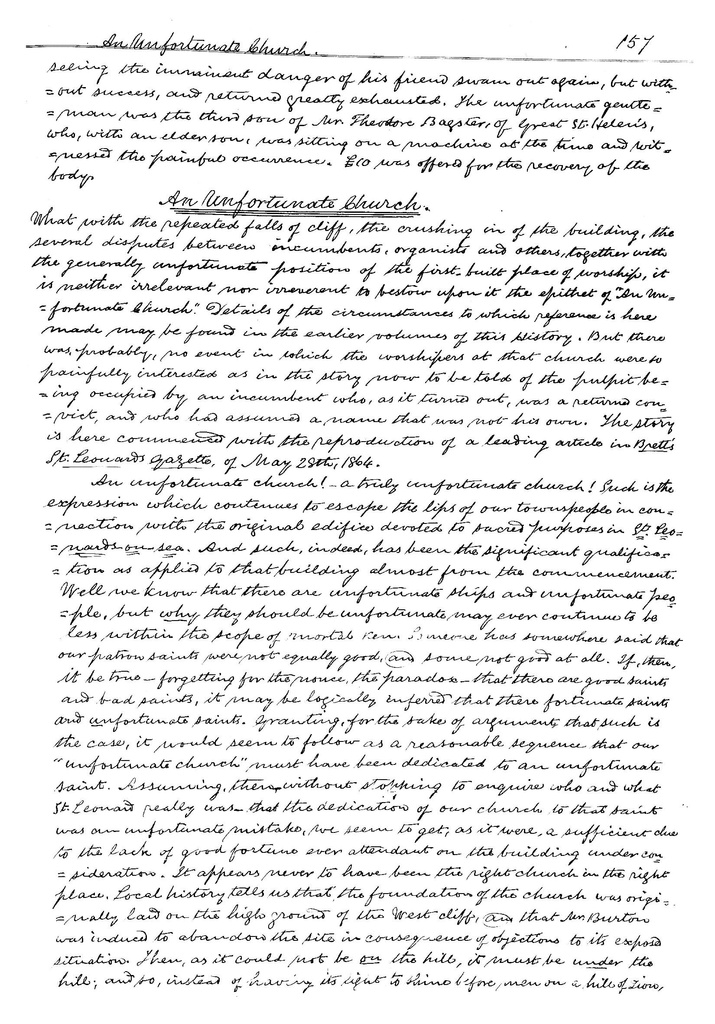 An Unfortunate Church. 157
seeing the imminent danger of his friend swam out again, but with-
=out success, and returned greatly exhausted. The unfortunate gentle=
=man was the third son of Mr. Theodore Bagster, of Great St. Helen's,
who, with an elder son, was sitting on a machine at the time and wit-
=nessed the painful occurrence. £10 was offered for the recovery of the
body.
An Unfortunate Church.
What with the repeated falls of cliff, the crushing in of the building, the
several disputes between incumbents, organists and others, together with
the generally unfortunate position of the first-built place of worship, it
is neither irrelevant nor irreverent to bestow upon it the epithet of "An Un-
=fortunate Church". Details of the circumstances to which reference is here
made may be found in the earlier volumes of this History. But there
was, probably, no event in which the worshipers at that church were so
painfully interested as in the story now to be told of the pulpit be-
=ing occupied by an incumbent who, as it turned out, was a returned con-
=vict, and who had assumed a name that was not his own. The story
is here commenced with the reproduction of a leading article in Brett's
St. Leonards Gazette, of May 28th, 1864.
An unfortunate church! - a truly unfortunate church! Such is the
expression which continues to escape the lips of our townspeople in con-
=nection with the original edifice devoted to sacred purposes in St. Leo=
=nards-on-sea. And such, indeed, has been the significant qualifica=
=tion as applied to that building almost from the commencement.
Well we know that there are unfortunate ships and unfortunate peo-
=ple, but why they should be unfortunate may ever continue to be
less within the scope of mortal ken. Someone has somewhere said that
our patron saints were not equally good, and some not good at all. If, then,
it be true - forgetting for the nonce, the paradox - that there are good saints
and bad saints, it may be logically inferred that there fortunate saints
and unfortunate saints. Granting, for the sake of arguments that such is
the case, it would seem to follow as a reasonable sequence that our
"unfortunate church" must have been dedicated to an unfortunate
saint. Assuming, then, without stopping to enquire who and what
St. Leonard really was - that the dedication of our church to that saint
was an unfortunate mistake, we seem to get, as it were, a sufficient clue
to the lack of good fortune ever attendant on the building under con
=sideration. It appears never to have been the right church in the right
place. Local history tells us that the foundation of the church was origi=
=nally laid on the high ground of the West cliff, and that Mr. Burton
was induced to abandon the site in consequence of objections to its exposed
situation. Then, as it could not be on the hill, it must be under the
hill; and so, instead of having its light to shine before men on a hill of Zion,